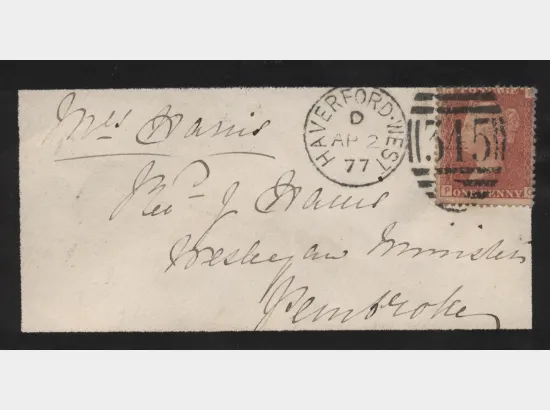 Mrs Harris
Revd J Harris
Wesleyan Minister
Pembroke
HAVERFORD-WEST
D
AP 2
77
345
POSTAGE
P ONE PENNY